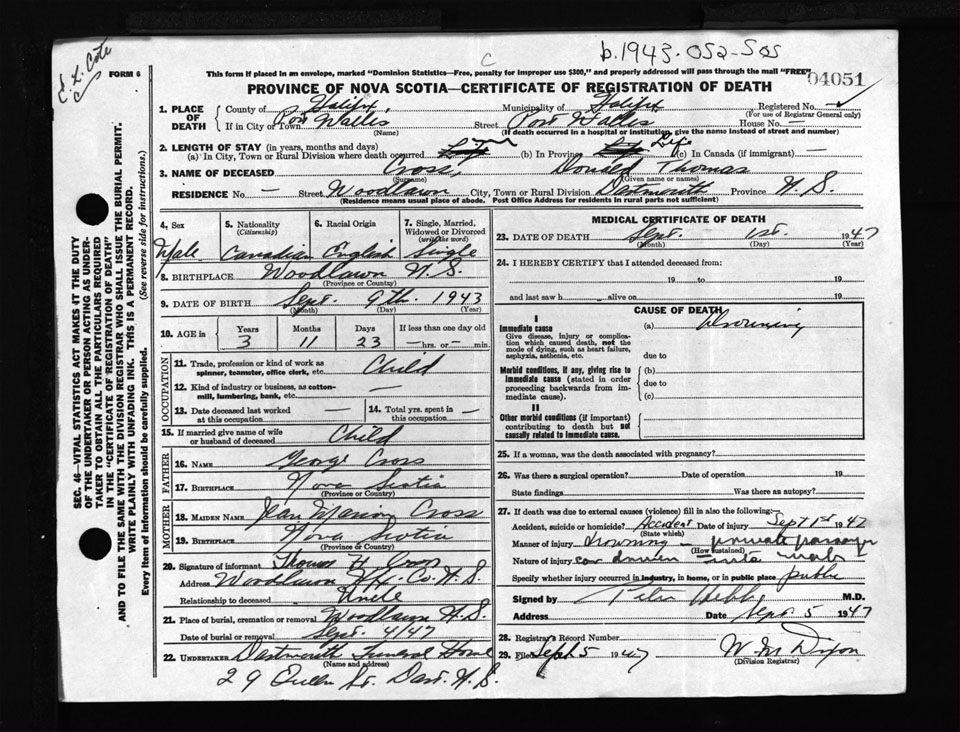 E. L. Cote
FORM 6
b. 1943-052-505
C
This form if placed in an envelope, marked "Dominion Statistics—Free, penalty for improper use $300," and properly addressed will pass through the mail "FREE"
04051
PROVINCE OF NOVA SCOTIA—CERTIFICATE OF REGISTRATION OF DEATH
1. PLACE OF DEATH County of Halifax, Municipality of Halifax Registered No. ✓
(For use of Registrar General only)
If in City or Town Port Wallis Street Port Wallis House No. —
(Name) (If death occurred in a hospital or institution, give the name instead of street and number)
2. LENGTH OF STAY (in years, months and days)
(a) In City, Town or Rural Division where death occurred (b) In Province Life (c) In Canada (if immigrant) —
3. NAME OF DECEASED Cross, Donald Thomas
(Surname) (Given name or names)
RESIDENCE No — Street Woodlawn City, Town or Rural Division Dartmouth Province N.S.
(Residence means usual place of abode. Post Office Address for residents in rural parts not sufficient)
SEC. 46—VITAL STATISTICS ACT MAKES IT THE DUTY
OF THE UNDERTAKER OR PERSON ACTING AS UNDER-
TAKER TO OBTAIN ALL THE PARTICULARS REQUIRED
IN THE "CERTIFICATE OF REGISTRATION OF DEATH"
AND TO FILE THE SAME WITH THE DIVISION REGISTRAR WHO SHALL ISSUE THE BURIAL PERMIT.
WRITE PLAINLY WITH UNFADING INK. THIS IS A PERMANENT RECORD.
Every item of information should be carefully supplied. (See reverse side for instructions.)
4. Sex 5. Nationality (Citizenship) 6. Racial Origin 7. Single, Married, Widowed or Divorced (write the word)
Male Canadian English Single
8. BIRTHPLACE Woodlawn N.S.
(Province or Country)
9. DATE OF BIRTH Sept. 9th. 1943
(Month) (Day) (Year)
10. AGE in Years Months Days If less than one day old
3 11 23 — hrs. or — min.
OCCUPATION
11. Trade, profession or kind of work as spinner, teamster, office clerk, etc. Child
12. Kind of industry or business, as cotton-mill, lumbering, bank, etc. —
13. Date deceased last worked at this occupation — 14. Total yrs. spent in this occupation —
15. If married give name of wife or husband of deceased Child
FATHER
16. NAME George Cross
17. BIRTHPLACE Nova Scotia
(Province or Country)
MOTHER
18. MAIDEN NAME Jean Cross
19. BIRTHPLACE Nova Scotia
(Province or Country)
20. Signature of informant Thomas H Cross
Address Woodlawn Hfx. Co. N.S.
Relationship to deceased Uncle
21. Place of burial, cremation or removal Woodlawn N.S.
Date of burial or removal Sept. 4/47
22. UNDERTAKER Dartmouth Funeral Home
(Name and address)
29 Queen St. Dart. N.S.
MEDICAL CERTIFICATE OF DEATH
23. DATE OF DEATH Sept. 1st. 1947
(Month) (Day) (Year)
24. I HEREBY CERTIFY that I attended deceased from:
19 to 19
and last saw h alive on 19
CAUSE OF DEATH
I
Immediate cause (a) Drowning
Give disease, injury or complication which caused death, not the mode of dying, such as heart failure, asphyxia, asthenia, etc.
due to
Morbid conditions, if any, giving rise to immediate cause (stated in order proceeding backwards from immediate cause).
(b)
due to
(c)
II
Other morbid conditions (if important) contributing to death but not causally related to immediate cause.
25. If a woman, was the death associated with pregnancy?
26. Was there a surgical operation? Date of operation 19
State findings Was there an autopsy?
27. If death was due to external causes (violence) fill in also the following:
Accident, suicide or homicide? Accident Date of injury Sept 1st 1947
(State which)
Manner of injury drowning — private passenger
(How sustained)
Nature of injury car driven into water
Specify whether injury occurred in industry, in home, or in public place public
Signed by M.D.
Address Date Sept 5 1947
28. Registrar's Record Number
29. Filed Sept 5 1947 W. M Dixon
(Division Registrar)